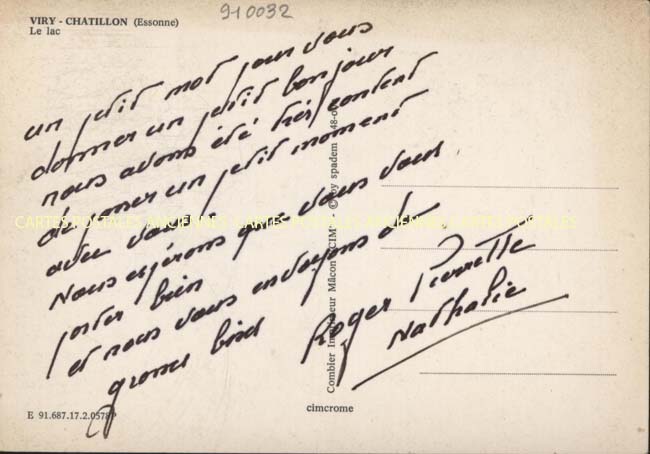 910032
VIRY - CHATILLON (Essonne)
Le lac
un petit mot pour vous
donner un petit bonjour
nous avons été très content
de passer un petit moment
avec vous
Nous espérons que vous vous
porter bien
et nous vous envoyons de
grosses bises
Roger Pierrette
Nathalie
CARTES POSTALES ANCIENNES - CARTES POSTALES - ANCIENNES CARTES POSTALES
Combier Imprimeur Mâcon "CIM" © by spadem
E 91.687.17.2.0578
cimcrome